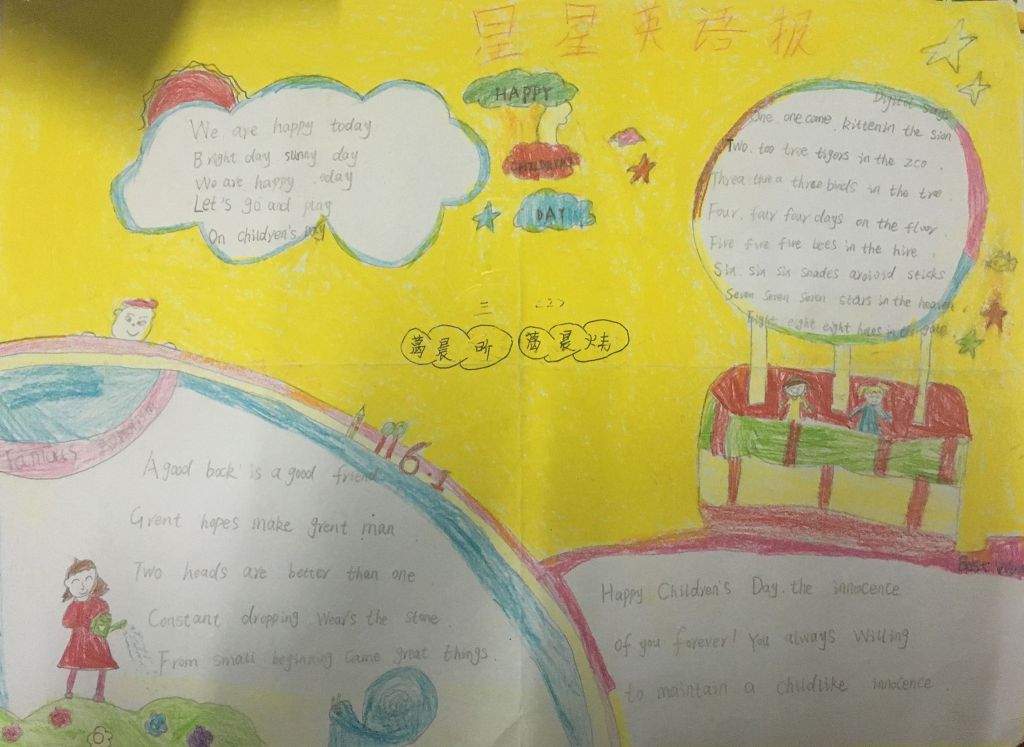 星星英语报
HAPPY
CHILDREN'S
DAY
We are happy today
Bright day sunny day
We are happy oday
Let's go and play
On children's Day
Digital Says
One one come kittenin the sian
Two. too tree tigers in the zco
Threa threa three birds in the tree
Four, fair four days on the fluor
Five five five bees in the hire
Six six six snades aroioid sticks
Seven Seven Seven stars in the heaven
Eight eight eight
三 (2)
晨昕
晨炜
6.1
Famous
A good book is a good friend
Grent hopes make grent man
Two heads are better than one
Constant dropping Wear's the stone
From small beginning Came great things
Best
Happy Children's Day. the innocence
of you forever! You always Willing
to maintain a childlike innocence